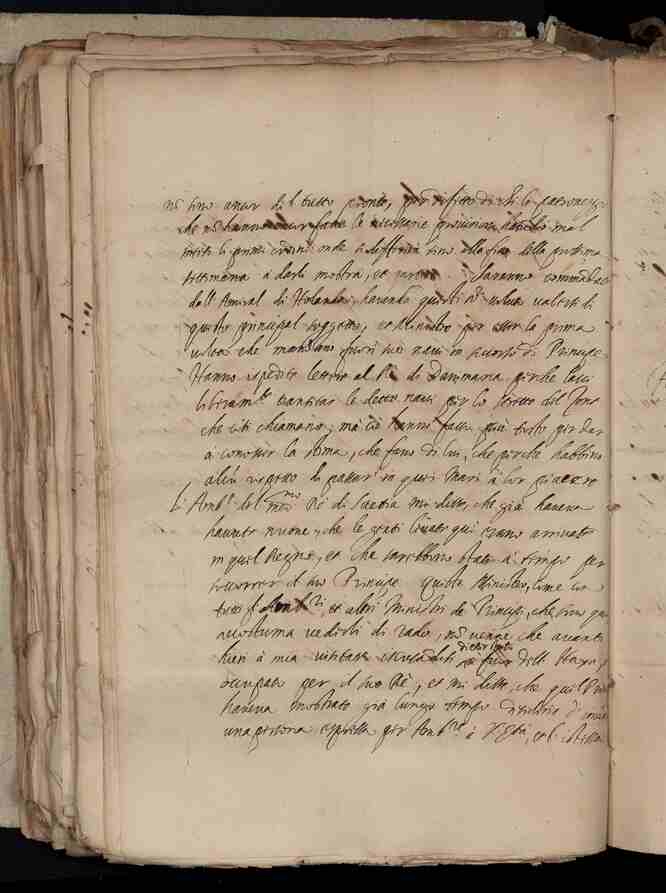 nō sino ancor del tutto pronte, per difetto di chi le patroneggia
che nō hanno ancor fatte le necessarie provisioni, havendo mal
intesi li primi ordini onde a sufficien sino alla fine della prossima
settimana a darli mostra, et Saranno commandate
dall' Amiral di Holanda, havendo questi SS.ri voluto valersi di
questo principal soggetto, et Ministro per esser la prima
volta che mandano fuori sue navi in servitio di Principe
Hanno espedito lettere al Rè di Danimarca perche lasci
liberam.te transitar le dette navi per lo stretto del Zont
che così chiamano; ma ciò hanno fatto più tosto per dar
à conoscer la stima, che fano di lui, che perche habbino
alcū rispetto di passar in quei Mari à lor piacere
L'Amb.r del novo Rè di Suetia mi disse, che già haveva
havuto nuove, che le genti levate qui erano arrivate
in quel Regno, et che sarebbono state à tempo per
soccorrer il suo Principe. Questo Ministro, come con
tutti gl' Amb.ri, et altri Ministri de Principi, che sino qui
accostuma vederli di rado, nō venne che avanti
hieri à mia visitatione dell' Haya
occupato per il suo Rè, et mi disse, che quel
haveva mostrato già lungo tempo desiderio d'inviar
una persona espressa per Amb.re à V. S.tà, et